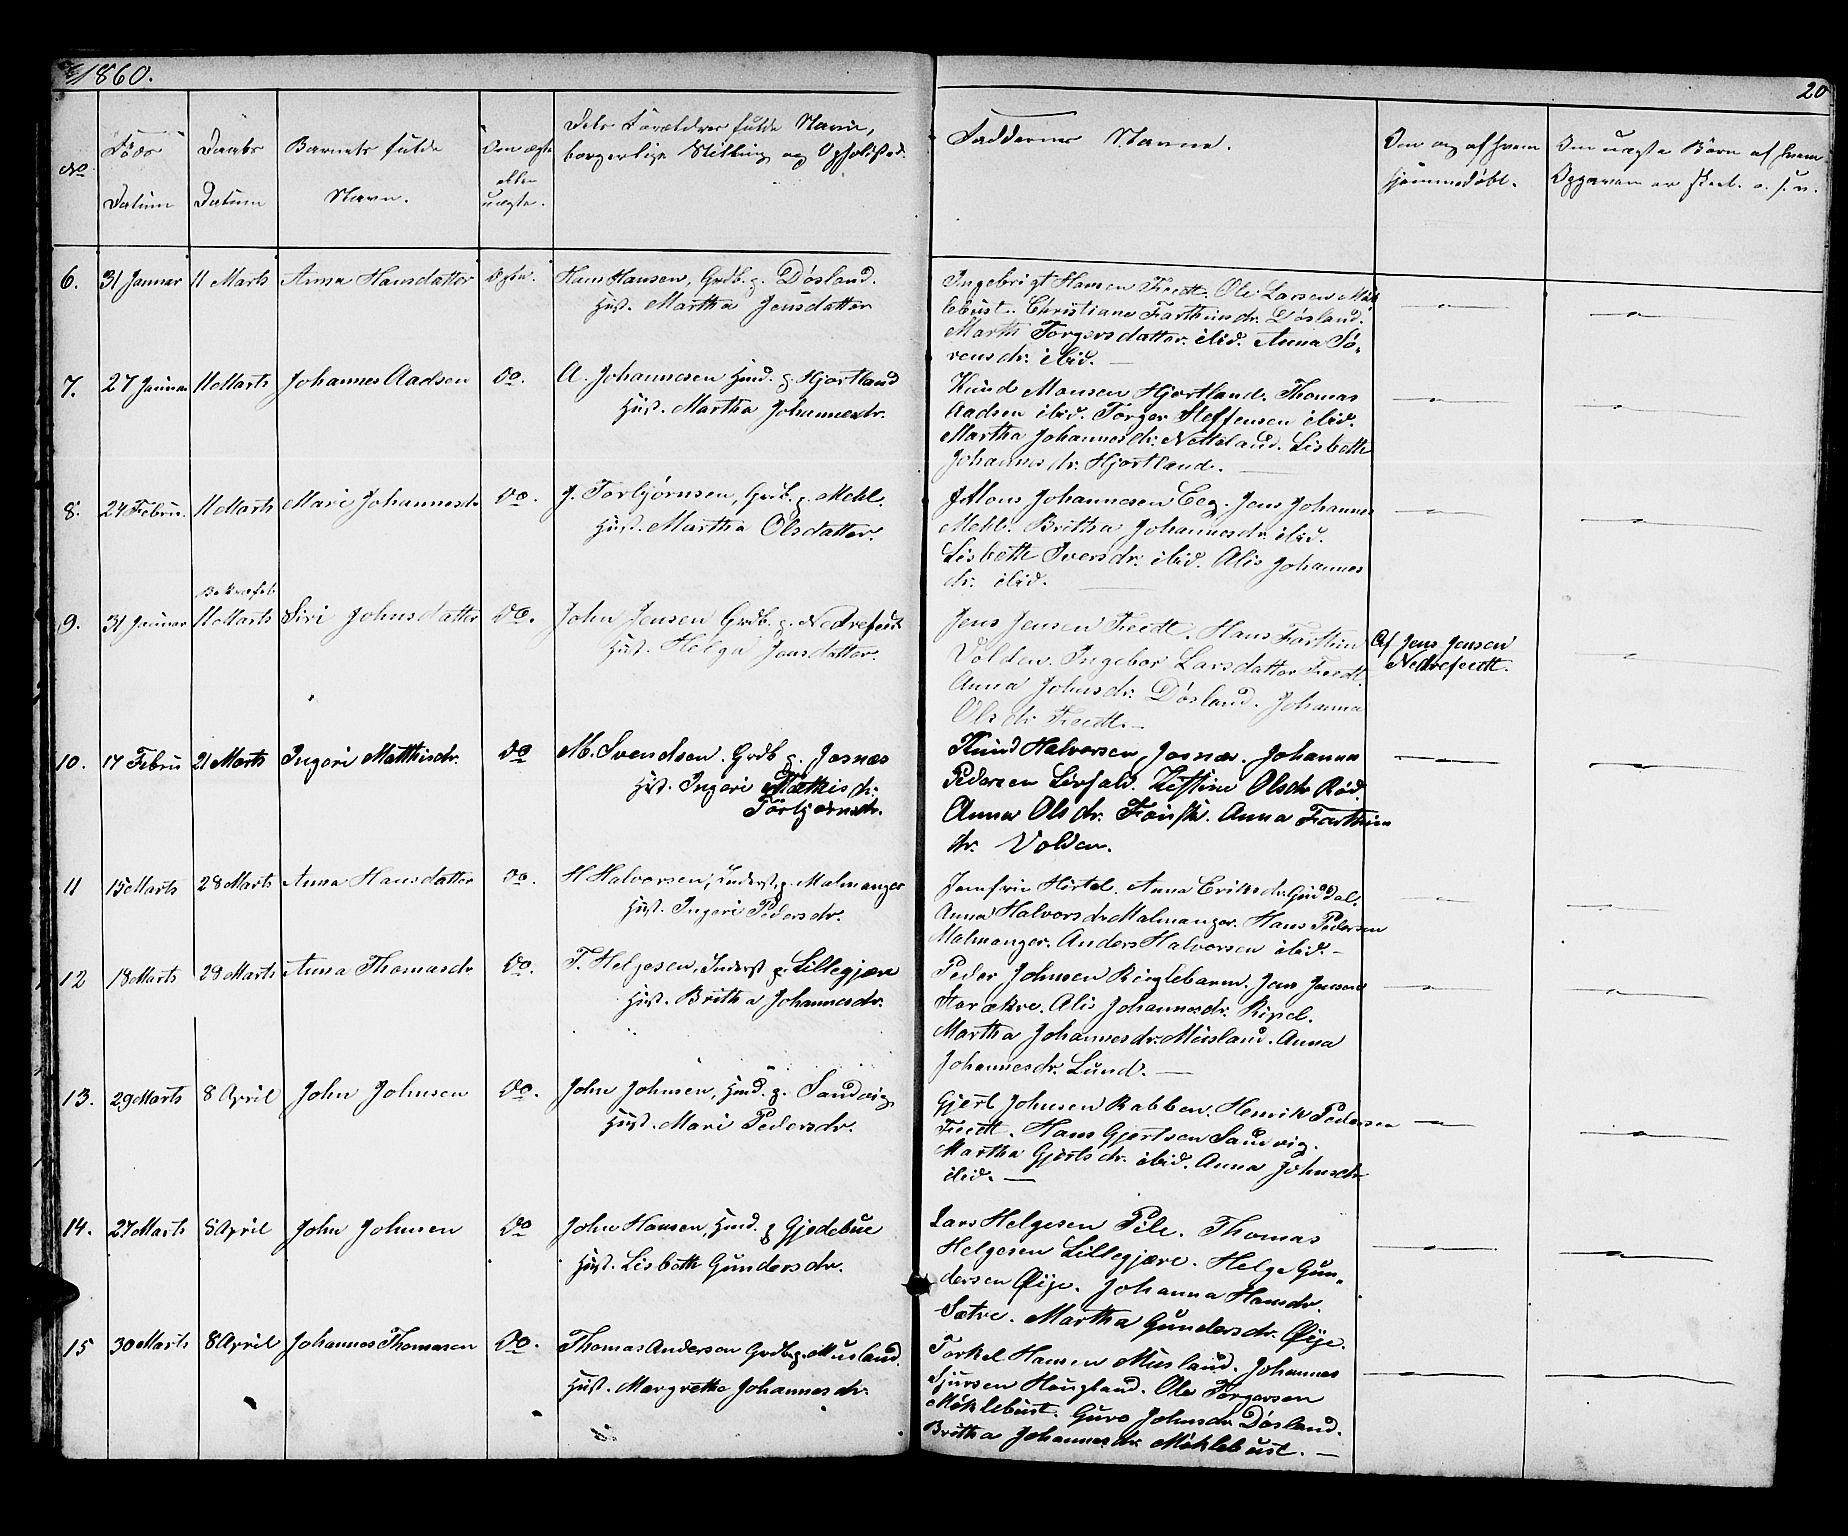 1860.
20
No
Føds Datum
Daabs Datum
Barnets fulde Navn.
Om ægte eller uægte.
Dets Forældres fulde Navne, borgerlige Stilling og Opholdsted.
Faddernes Navne.
Om og af hvem hjemmedøbt.
Om uægte Børn af hvem Opgaven er skeet. o. s. v.
6. 31 Januar 11 Marts Anna Hansdatter Ægte. Hans Hansen, Grdb. g. Døsland.
Hust. Martha Jensdatter
Ingebrigt Hansen Feedt. Ole Larsen Møk
lebust. Christiane Farthinsdr. Døsland.
Marth Torgersdatter ibid. Anna Sø-
rensdr. ibid. —
7. 27 Januar 11 Marts Johannes Aadsen Do. A. Johannesen Hmd. g. Hjortland
Hust. Martha Johannesdr.
Knud Monsen Hjortland. Thomas
Aadsen ibid. Torger Steffensen ibid.
Martha Johannesdr. Netteland. Lisbeth
Johannesdr. Hjortland.
8. 24 Febru. 11 Marts Mari Johannesdr. Do. J. Torbjørnsen, Grdb. g. Mehl.
Hust. Martha Olsdatter.
Mons Johannesen Eeg. Jens Johannes
Mehl. Britha Johannesdr. ibid.
Lisbeth Iversdr. ibid. Alis Johannes
dr. ibid.
Bekræft
9. 31 Januar 11 Marts Siri Johnsdatter Do. John Jensen Grdb. g. Nedrefeedt
Hust. Helga Jensdatter.
Jens Jensen Feedt. Hans Farthin
Volden. Ingebor Larsdatter Feedt.
Anna Johnsdr. Døsland. Johanna
Olsdr. Feedt. —
Af Jens Jensen
Nedrefeedt.
10. 17 Febru 21 Marts Ingeri Matthisdr. Do M. Svendsen. Grdb. g. Josnæs
Hust. Ingeri Mathisdr.
Torbjørnsdr.
Knud Halvorsen, Josnæs. Johanna
Pedersen Lirfald. Kistine Olsdr. Rød.
Anna Olsdr. Anna Farthins
dr. Volden.
11 15 Marts 28 Marts Anna Hansdatter Do. H Halvorsen, Inderst g. Malmanger
Hust. Ingeri Pedersdr.
Jomfrue Hertel. Anna Eriksdr. Guddal.
Anna Halvorsdr. Malmanger. Hans Pedersen
Malmanger. Anders Halvorsen ibid. —
12 18 Marts 28 Marts Anna Thomasdr. Do. T. Helgesen, Inderst g. Lillegjære
Hust. Britha Johannesdr.
Peder Johnsen Ringlebarm. Jens Jensen
Storækre. Alis Johannesdr. Ripel.
Martha Johannesdr. Musland. Anna
Johannesdr. Lund. —
13. 29 Marts 8 April John Johnsen Do. John Johnsen, Hmd. g. Sandvig
Hust. Mari Pedersdr.
Gjert Johnsen Rabben. Henrik Pedersen
Feedt. Hans Gjertsen Sandvig.
Martha Gjertsdr. ibid. Anna Johnsdr
ibid. —
14. 27 Marts 8 April John Johnsen Do John Hansen, Hmd. g Gjedebue
Hust. Lisbeth Gundersdr.
Lars Helgesen Pile. Thomas
Helgesen Lillegjære. Helge Gun-
dersen Øije. Johanna Hansdr.
Sætre. Martha Gundersdr. Øije.
15 30 Marts 8 April Johannes Thomasen Do. Thomas Andersen Grdb. g. Musland.
Hust. Margrethe Johannesdr.
Torkel Hansen Musland. Johannes
Sjursen Hougland. Ole Torgersen
Møklebust. Guro Johnsdr. Døsland.
Britha Johannesdr. Møklebust. —